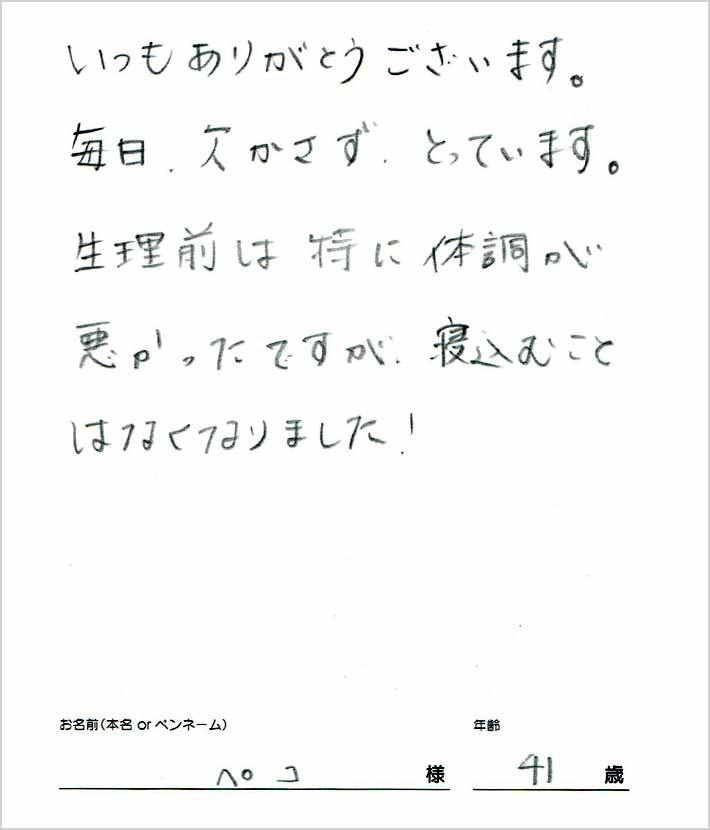 いつもありがとうございます。
毎日、欠かさず、とっています。
生理前は特に体調が
悪かったですが、寝込むこと
はなくなりました!
お名前(本名 or ペンネーム) 年齢
ペコ 様 41 歳